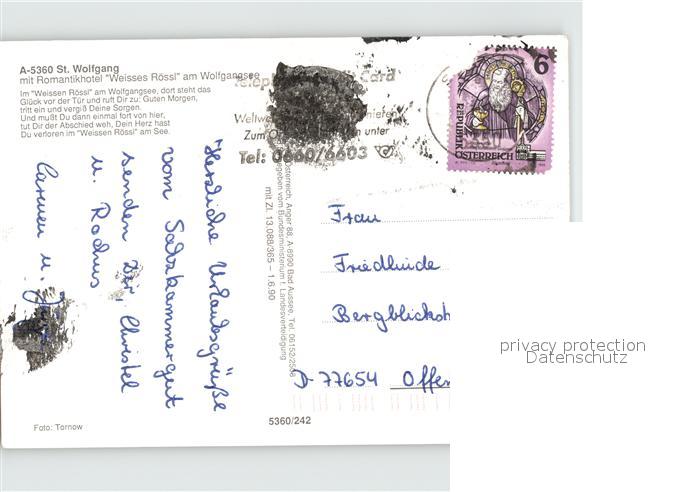 A-5360 St. Wolfgang
mit Romantikhotel "Weisses Rössl" am Wolfgangsee
Im "Weissen Rössl" am Wolfgangsee, dort steht das
Glück vor der Tür und ruft Dir zu: Guten Morgen,
tritt ein und vergiß Deine Sorgen.
Und mußt Du dann einmal fort von hier,
tut Dir der Abschied weh, Dein Herz hast
Du verloren im "Weissen Rössl" am See.
Card
Zum unter
Tel: 0660/6603
6
REPUBLIK
ÖSTERREICH
Herzliche Urlaubsgrüße
vom Salzkammergut
senden Dir, Christel
u. Rochus
Carmen u.
Österreich, Anger 88, A-8990 Bad Aussee, Tel. 06152/2558
vom Bundesministerium f. Landesverteidigung
mit Zl. 13.088/365 – 1.6.90
Frau
Friedlinde
D-77654 Offen
Foto: Tornow
5360/242
privacy protection
Datenschutz